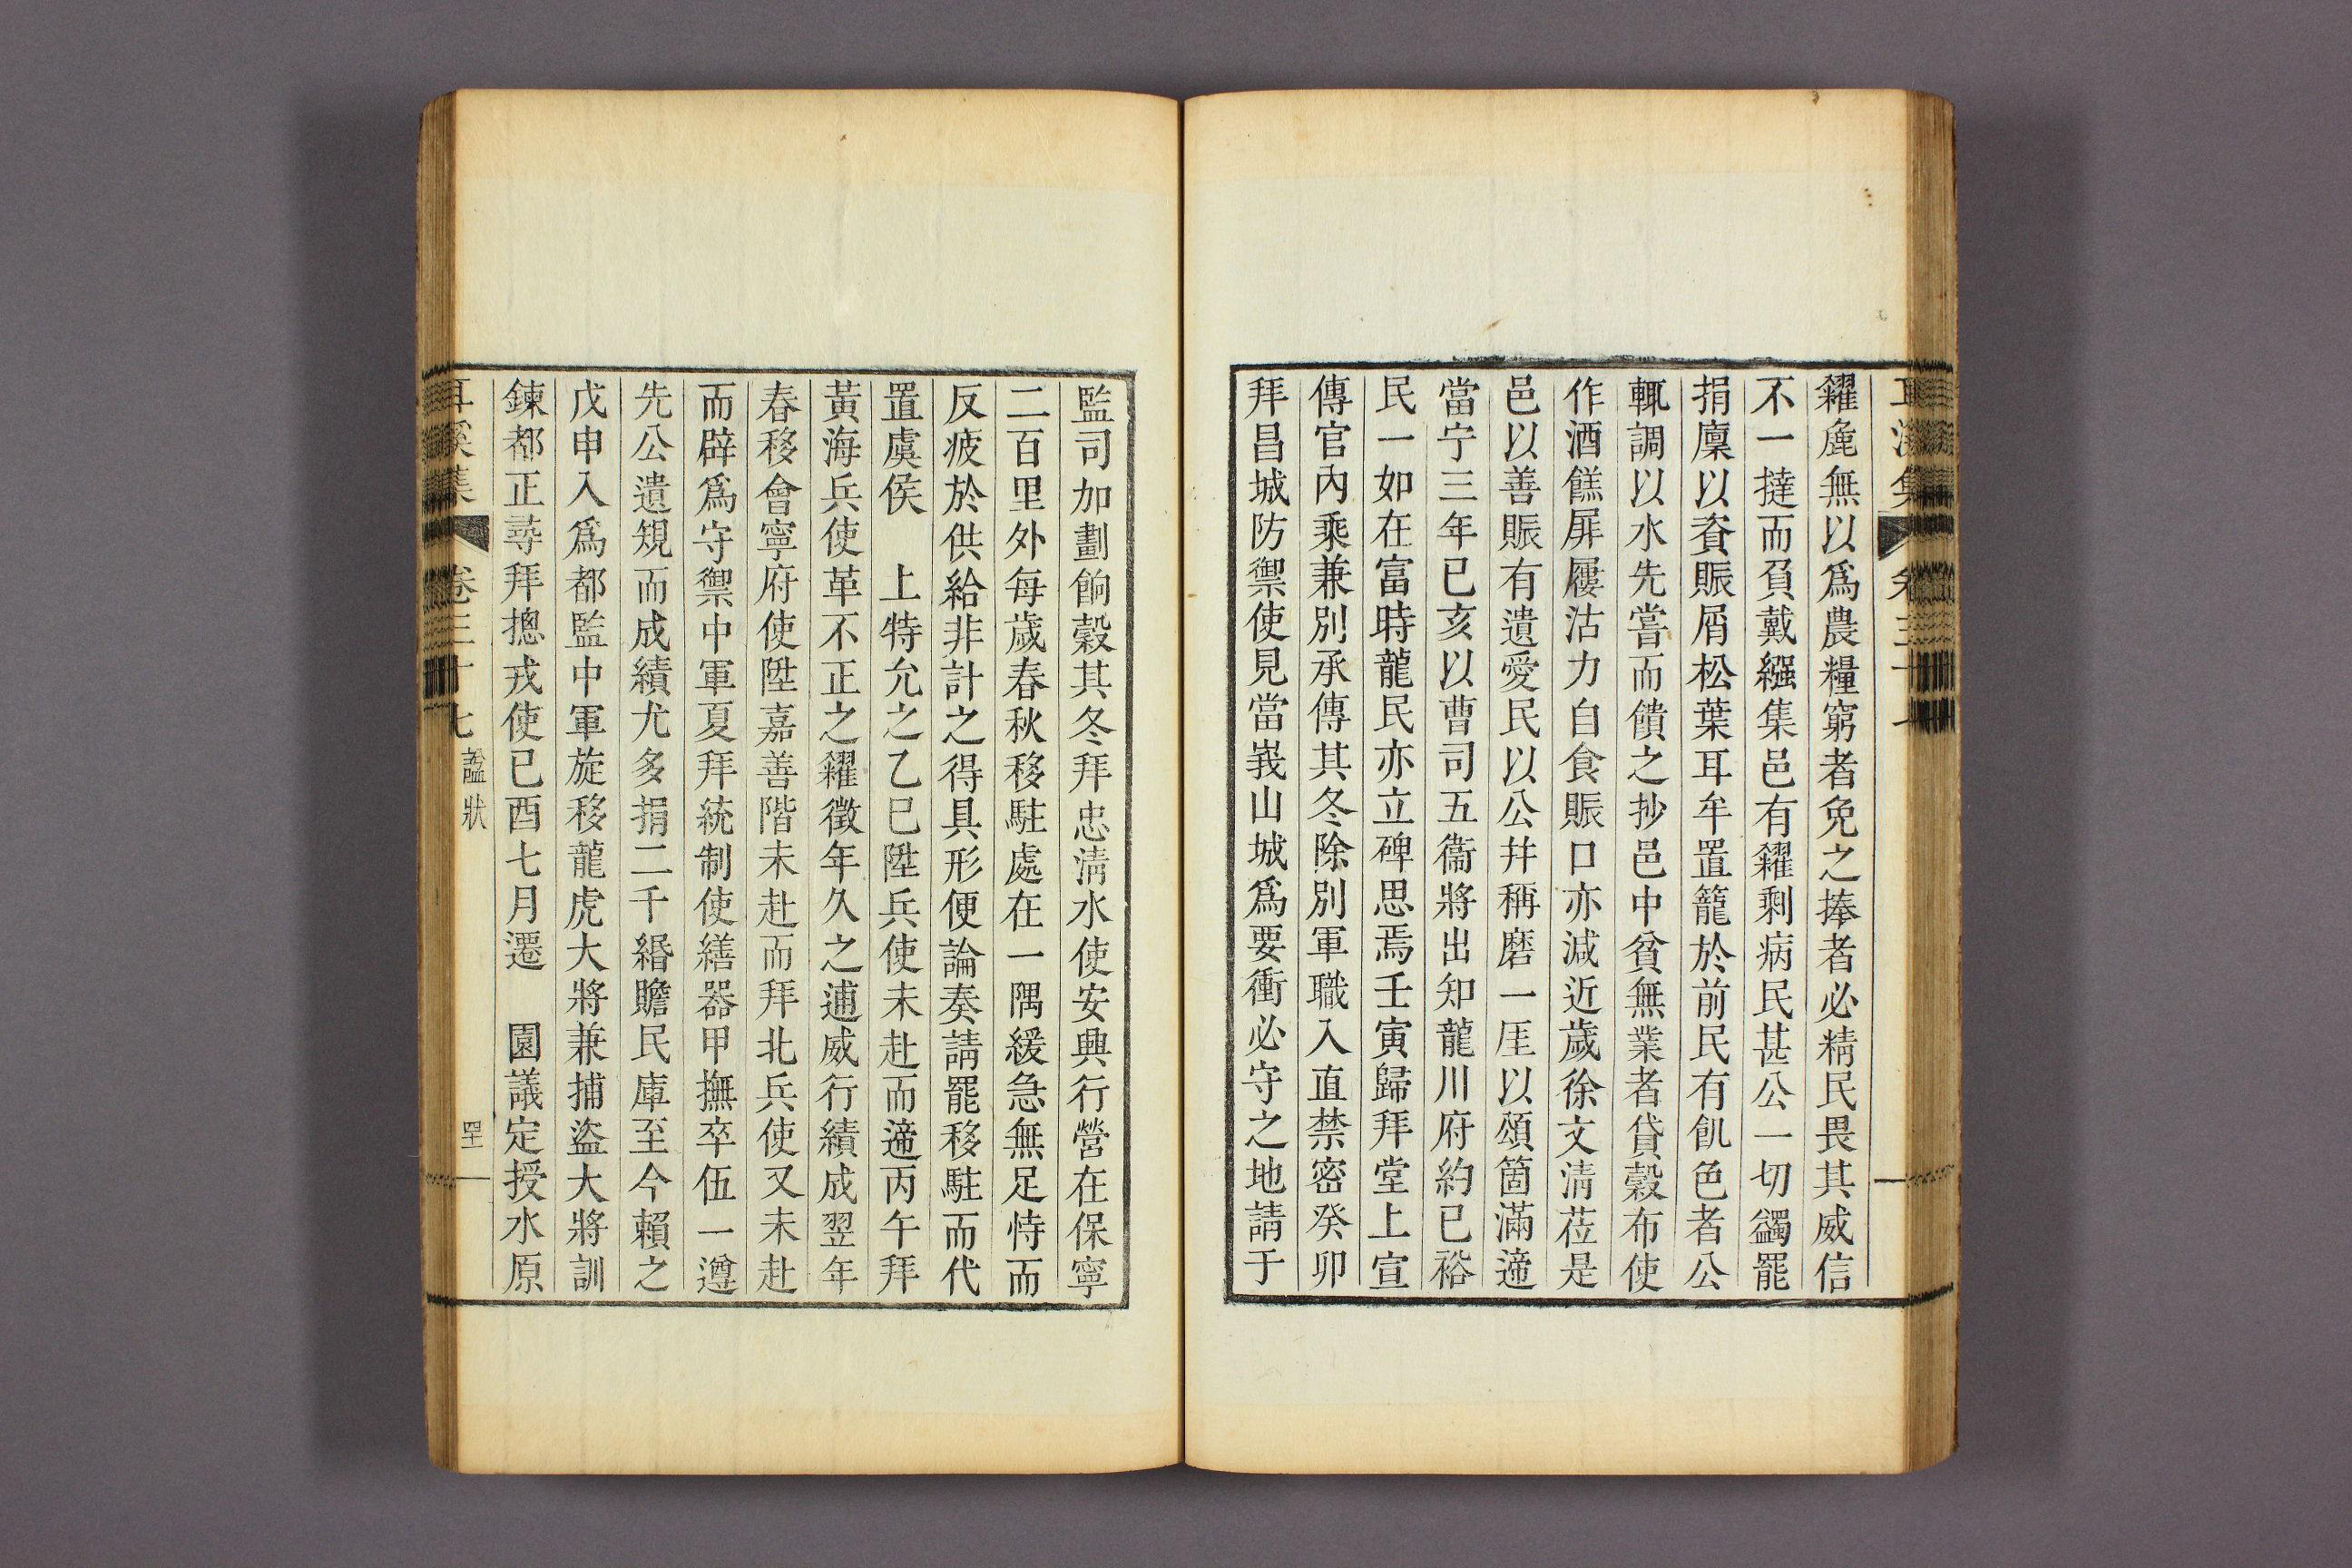 糶麁無以爲農糧窮者免之捧者必精民畏其威信
不一撻而負戴繦集邑有糶剩病民甚公一切蠲罷
捐廩以資賑屑松葉耳牟置籠於前民有飢色者公
輒調以水先嘗而饋之抄邑中貧無業者貸穀布使
作酒餻屝屨沽力自食賑口亦減近歲徐文淸莅是
邑以善賑有遺愛民以公幷稱磨一厓以頌箇滿遞
當宁三年已亥以曹司五衞將出知龍川府約已裕
民一如在富時龍民亦立碑思焉壬寅歸拜堂上宣
傳官內乘兼別承傳其冬除別軍職入直禁密癸卯
拜昌城防禦使見當峩山城爲要衝必守之地請于
監司加劃餉穀其冬拜忠淸水使安興行營在保寧
二百里外每歲春秋移駐處在一隅緩急無足恃而
反疲於供給非計之得具形便論奏請罷移駐而代
置虞侯　上特允之乙巳陞兵使未赴而遞丙午拜
黃海兵使革不正之糶徵年久之逋威行績成翌年
春移會寧府使陞嘉善階未赴而拜北兵使又未赴
而辟爲守禦中軍夏拜統制使繕器甲撫卒伍一遵
先公遺規而成績尤多捐二千緡贍民庫至今賴之
戊申入爲都監中軍旋移龍虎大將兼捕盜大將訓
鍊都正尋拜摠戎使已酉七月遷　園議定授水原
耳溪集　卷三十七　諡狀　四十一